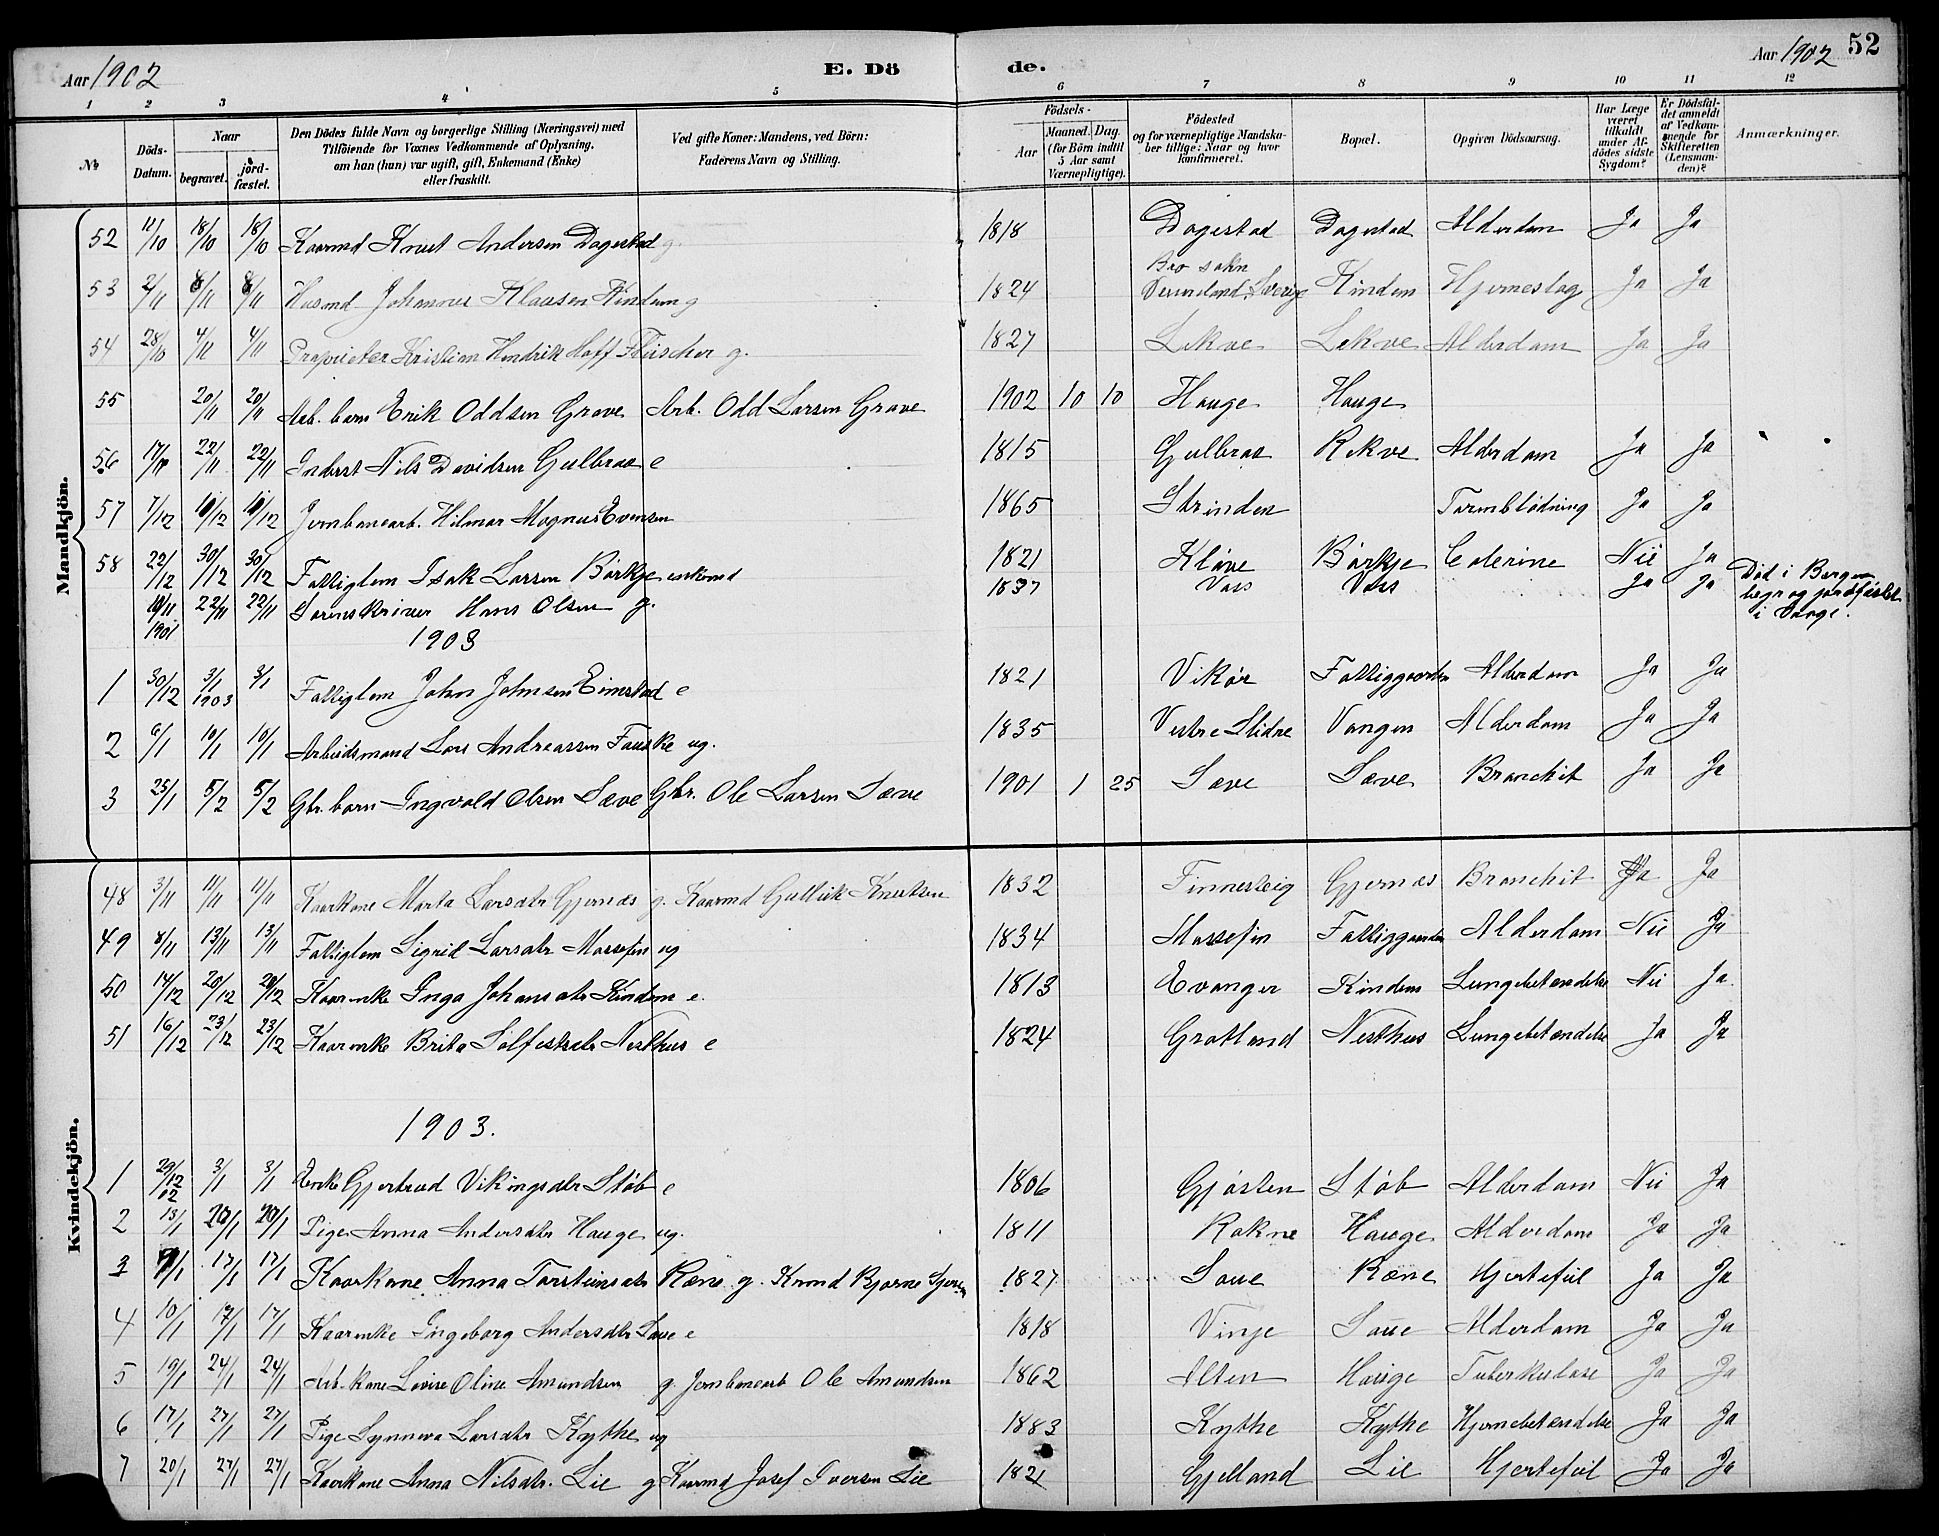 Aar 1902 E. Dö de. Aar 1902 52
1 2 3 4 5 6 7 8 9 10 11 12
№ Döds-Datum. Naar begravet. jord-fæstet. Den Dödes fulde Navn og borgerlige Stilling (Næringsvei) med Tilföiende for Voxnes Vedkommende af Oplysning, om han (hun) var ugift, gift, Enkemand (Enke) eller fraskilt. Ved gifte Koner: Mandens, ved Börn: Faderens Navn og Stilling. Födsels- Aar Maaned. Dag. (for Börn indtil 5 Aar samt Værnepligtige). Födested og for værnepligtige Mandskaber tillige: Naar og hvor konfirmeret. Bopæl. Opgiven Dödsaarsag. Har Læge været tilkaldt under Afdödes sidste Sygdom? Er Dödsfaldet anmeldt af Vedkommende for Skifteretten (Lensmanden)? Anmærkninger.
Mandkjön.
52 11/10 18/10 18/10 Kaarmd Knut Andersen Dagestad g. 1818 Dagestad Dagestad Alderdom Ja Ja
53 2/11 8/11 8/11 Husmd Johannes Klausen Kindem g 1824 Bro sokn Vermeland, Sverige Kindem Hjerneslag Ja Ja
54 28/10 4/11 4/11 Proprietær Kristian Hendrik Hoff Fleischer g. 1827 Lekve Lekve Alderdom Ja Ja
55 20/11 20/11 Arb. barn Erik Oddsen Grove Arb. Odd Larsen Grove 1902 10 10 Hauge Hauge
56 17/11 22/11 22/11 Inderst Nils Davidsen Gulbraa e 1815 Gulbraa Rekve Alderdom Ja Ja
57 7/12 10/12 10/12 Jernbanearb. Hilmar Magnus Evensen 1865 Strinden Tarmblødning Ja Ja
58 22/12 30/12 30/12 Fattiglem Isak Larsen Børkje enkemd 1821 Kløve Børkje Colerine Nei Ja
19/11 1901 22/11 22/11 Sorenskriver Hans Olsen g. 1837 Voss Voss Ja Ja Død i Bergen begr og jordfæstet i Vange.
1903
1 30/12 3/1 1903 3/1 Fattiglem John Johnsen Eimstad e 1821 Vikør Fattiggaarden Alderdom Ja Ja
2 6/1 10/1 10/1 Arbeidsmand Lars Andreassen Fauske ug. 1835 Vestre Slidre Vangen Alderdom Ja Ja
3 25/1 5/2 5/2 Gbr. barn Ingvald Olsen Sæve Gbr. Ole Larsen Sæve 1901 1 25 Sæve Sæve Bronchit Ja Ja
Kvindekjön.
48 3/11 11/11 11/11 Kaarkone Marta Larsdtr Gjernes g. Kaarmd Gullik Knutsen 1832 Finnesteig Gjernes Bronchit Ja Ja
49 8/11 13/11 13/11 Fattiglem Sigrid Larsdtr Mossefin ug 1834 Mossefin Fattiggaarden Alderdom Nei Ja
50 14/12 20/12 20/12 Kaarenke Inga Johansdtr Kindem e. 1813 Evanger Kindem Lungebetændelse Nei Ja
51 16/12 23/12 23/12 Kaarenke Brita Sjolfestsdtr Nesthus e 1824 Grotland Nesthus Lungebetændelse Ja Ja
1903.
1 29/12 02 3/1 3/1 Enke Gjertrud Vikingsdtr Støb e 1806 Gjøsten Støb Alderdom Nei Ja
2 13/1 20/1 20/1 Pige Anna Andersdtr Hauge ug. 1811 Rokne Hauge Alderdom Ja Ja
3 9/1 17/1 17/1 Kaarkone Anna Torsteinsdtr Ræne g. Kaarmd Bjørne 1827 Saue Ræne Hjertefeil Ja Ja
4 10/1 17/1 17/1 Kaarenke Ingeborg Andersdtr Saue e 1818 Vinje Saue Alderdom Ja Ja
5 19/1 24/1 24/1 Arb. kone Lovise Oline Amundsen g. Jernbanearb Ole Amundsen 1862 Alten Hauge Tuberkulose Ja Ja
6 17/1 27/1 27/1 Pige Synneva Larsdtr Kythe ug 1883 Kythe Kythe Hjernebetændelse Ja Ja
7 20/1 27/1 27/1 Kaarkone Anna Nilsdtr. Lie g Kaarmd Josef Iversen Lie 1821 Gjelland Lie Hjertefeil Ja Ja